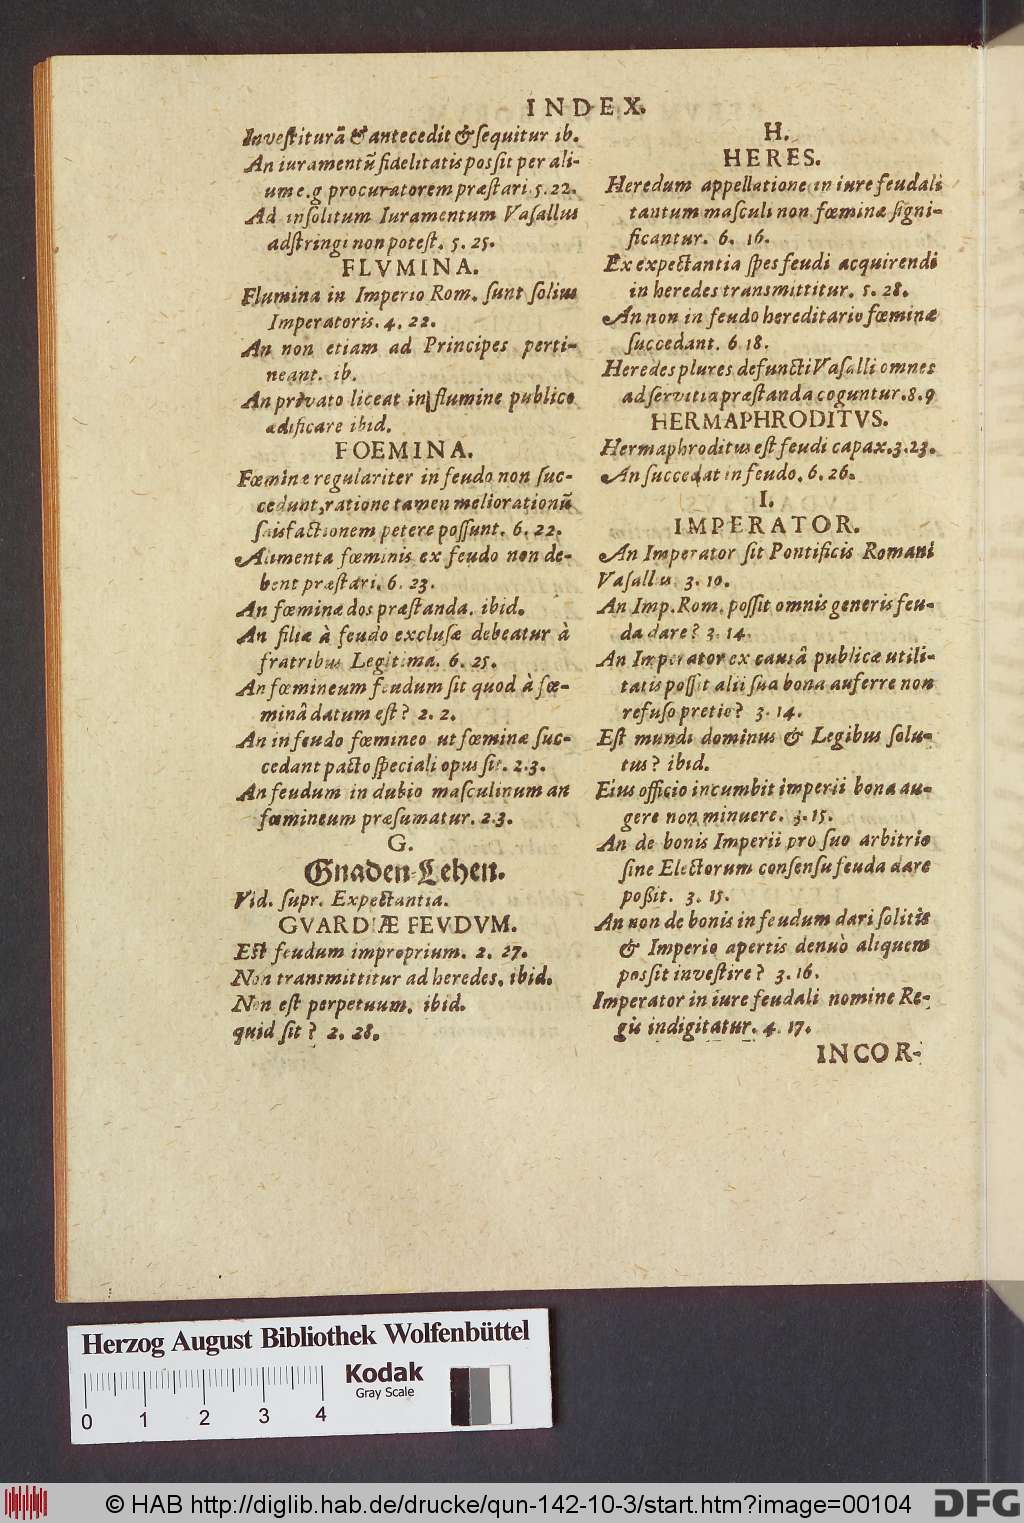 INDEX.
Inveſtiturā & antecedit & ſequitur ib.
An iuramentū fidelitatis poſsit per ali-
um e.g procuratorem præſtari. 5. 22.
Ad inſolitum Iuramentum Vaſallus
adſtringi non poteſt. 5. 25.
FLVMINA.
Flumina in Imperio Rom. ſunt ſolius
Imperatoris. 4. 22.
An non etiam ad Principes perti-
neant. ib.
An privato liceat in flumine publico
ædificare ibid.
FOEMINA.
Fœminæ regulariter in feudo non ſuc-
cedunt, ratione tamen meliorationū
ſatisfactionem petere poſſunt. 6. 22.
Alimenta fœminis ex feudo non de-
bent præſtari. 6. 23.
An fœminæ dos præſtanda. ibid.
An filiæ à feudo excluſæ debeatur à
fratribus Legitima. 6. 25.
An fœmineum feudum ſit quod à fœ-
minâ datum eſt? 2. 2.
An in feudo fœmineo ut fœminæ ſuc-
cedant pacto ſpeciali opus ſit. 2.3.
An feudum in dubio maſculinum an
fœmineum præſumatur. 2.3.
G.
Gnaden-Lehen.
Vid. ſupr. Expectantia.
GVARDIÆ FEVDVM.
Eſt feudum improprium. 2. 27.
Non transmittitur ad heredes. ibid.
Non eſt perpetuum. ibid.
quid ſit? 2. 28.
H.
HERES.
Heredum appellatione in iure feudali
tantum maſculi non fœminæ ſigni-
ficantur. 6. 16.
Ex expectantia ſpes feudi acquirendi
in heredes transmittitur. 5. 28.
An non in feudo hereditario fœminæ
ſuccedant. 6 18.
Heredes plures defuncti Vaſalli omnes
ad ſervitia præſtanda coguntur. 8. 9
HERMAPHRODITVS.
Hermaphroditus eſt feudi capax. 3. 23.
An ſuccedat in feudo. 6. 26.
I.
IMPERATOR.
An Imperator ſit Pontificis Romani
Vaſallus 3. 10.
An Imp. Rom. poſſit omnis generis feu-
da dare? 3. 14.
An Imperator ex cauſâ publicæ utili-
tatis poſſit alii ſua bona auferre non
refuſo pretio? 3. 14.
Eſt mundi dominus & Legibus ſolu-
tus? ibid.
Eius officio incumbit imperii bona au-
gere non minuere. 3. 15.
An de bonis Imperii pro ſuo arbitrio
ſine Electorum conſenſu feuda dare
poßit. 3. 15.
An non de bonis in feudum dari ſolitis
& Imperio apertis denuò aliquem
poſsit inveſtire? 3. 16.
Imperator in iure feudali nomine Re-
gis indigitatur. 4. 17.
INCOR-
Herzog August Bibliothek Wolfenbüttel
Kodak
Gray Scale
0 1 2 3 4
© HAB http://diglib.hab.de/drucke/qun-142-10-3/start.htm?image=00104
DFG